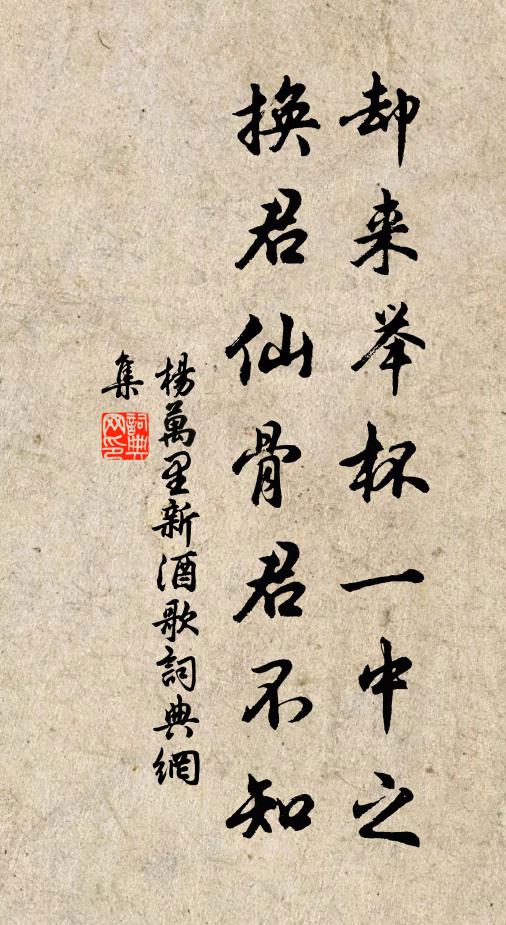 却来举杯一中之
换君仙骨君不知
楊萬里新酒歌詞典網
集
詞典网印